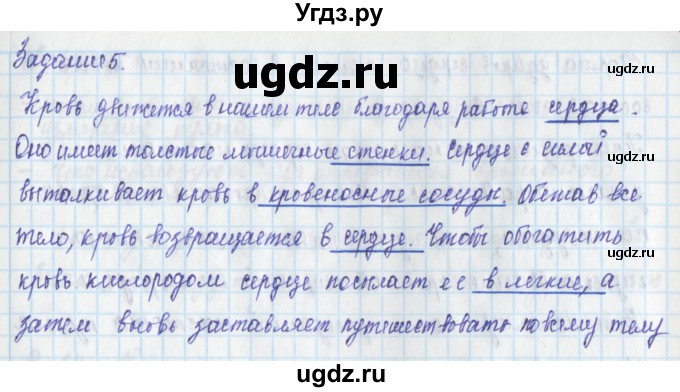 Угдз.ру
Задание 5.
ugdz.ru
Кровь движется в нашем теле благодаря работе сердца.
ugdz.ru
Оно имеет толстые мышечные стенки. Сердце с силой
ugdz.ru
выталкивает кровь в кровеносные сосуды. Обежав все
тело, кровь возвращается в сердце. Чтобы обогатить
ugdz.ru
кровь кислородом сердце посылает её в легкие, а
затем вновь заставляет путешествовать по всему телу
ugdz.ru
Угдз.ру